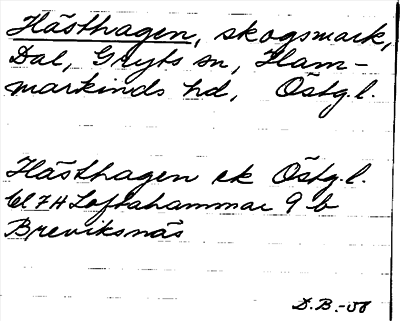 Hästhagen, skogsmark,
Dal, Gryts sn, Ham-
markinds hd, Östg.l.
Hästhagen ek Östg.l.
bl 7H Loftahammar 9 b
Breviksnäs
D.B.-58